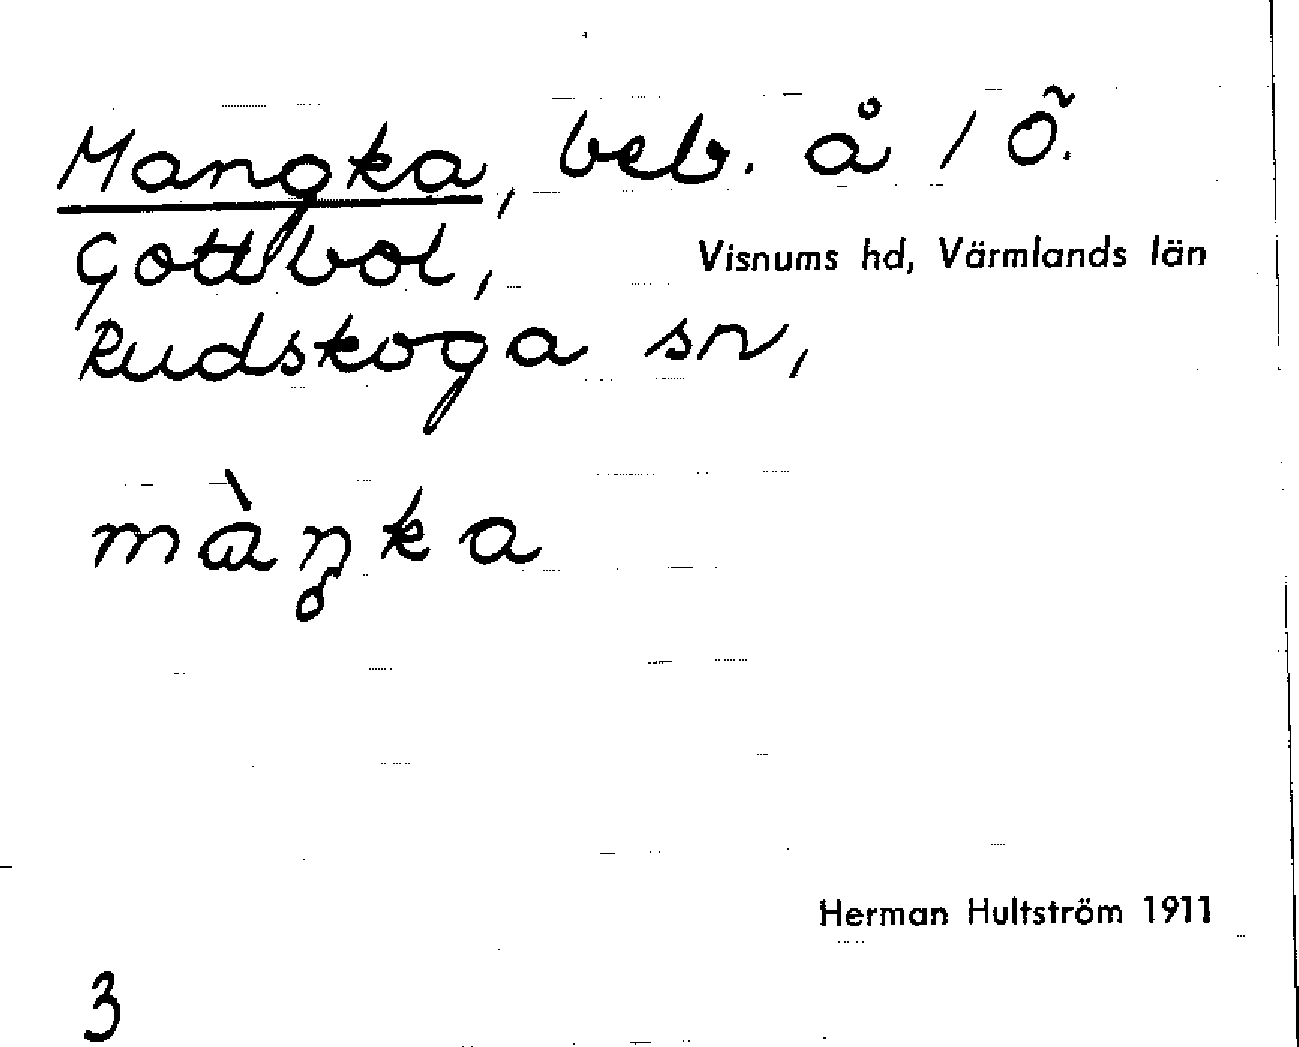 Mangka, beb. å 1 Ö.
Gottbol,
Visnums hd, Värmlands län
Rudskoga sn,
màŋka
Herman Hultström 1911
3